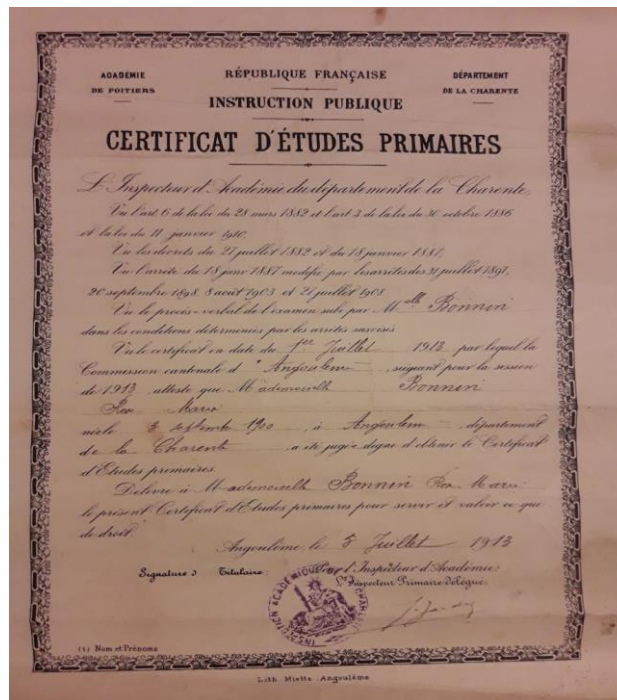 ACADÉMIE
DE POITIERS
RÉPUBLIQUE FRANÇAISE
DÉPARTEMENT
DE LA CHARENTE
INSTRUCTION PUBLIQUE
CERTIFICAT D'ÉTUDES PRIMAIRES
L'Inspecteur d'Académie du département de la Charente,
Vu l'art. 6 de la loi du 28 mars 1882 et l'art. 3 de la loi du 30 octobre 1886
et la loi du 11 janvier 1910,
Vu les décrets du 27 juillet 1882 et du 18 janvier 1887,
Vu l'arrêté du 18 janv. 1887 modifié par les arrêtés des 31 juillet 1897,
20 septembre 1898, 8 août 1903 et 21 juillet 1908
Vu le procès-verbal de l'examen subi par Melle Bonnin
dans les conditions déterminées par les arrêtés susvisés
Vu le certificat en date du 1er Juillet 1913, par lequel la
Commission cantonale d'Angoulême, siégeant pour la session
de 1913, atteste que Mademoiselle Bonnin
Marie
née le 3 septembre 1900, à Angoulême, département
de la Charente, a été jugée digne d'obtenir le Certificat
d'Études primaires.
Délivré à Mademoiselle Bonnin Marie
le présent Certificat d'Études primaires pour servir et valoir ce que
de droit.
Angoulême, le 5 Juillet 1913
Signature d Titulaire:
Pour l'Inspecteur d'Académie:
L'Inspecteur Primaire délégué:
INSPECTION ACADÉMIQUE
(1) Nom et Prénoms
Lith. Miette. Angoulême